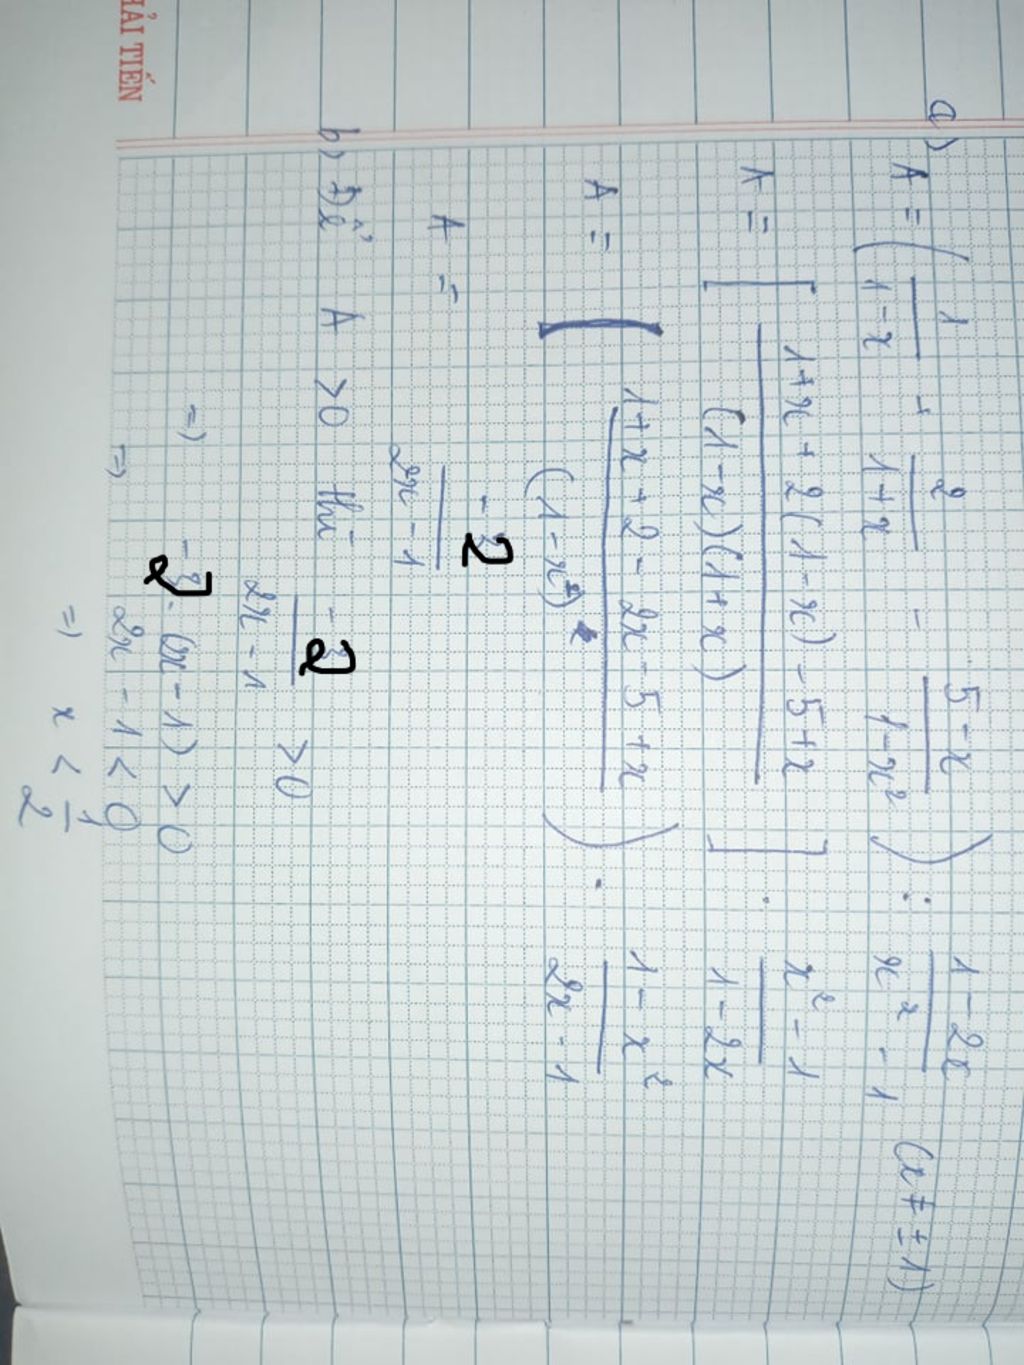 HẢI TIẾN
a) A = ( 1/(1-x) + 2/(1+x) - (5-x)/(1-x²) ) : (1-2x)/(x²-1) (x ≠ ±1)
A = [ (1+x+2(1-x)-5+x)/((1-x)(1+x)) ] . (x²-1)/(1-2x)
A = [ (1+x+2-2x-5+x)/(1-x²) ) . (1-x²)/(2x-1)
A = -2/(2x-1)
b) Để A >0 thì -2/(2x-1) >0
=) -2. (x-1) > 0
=) 2x-1 < 0
=) x < 1/2